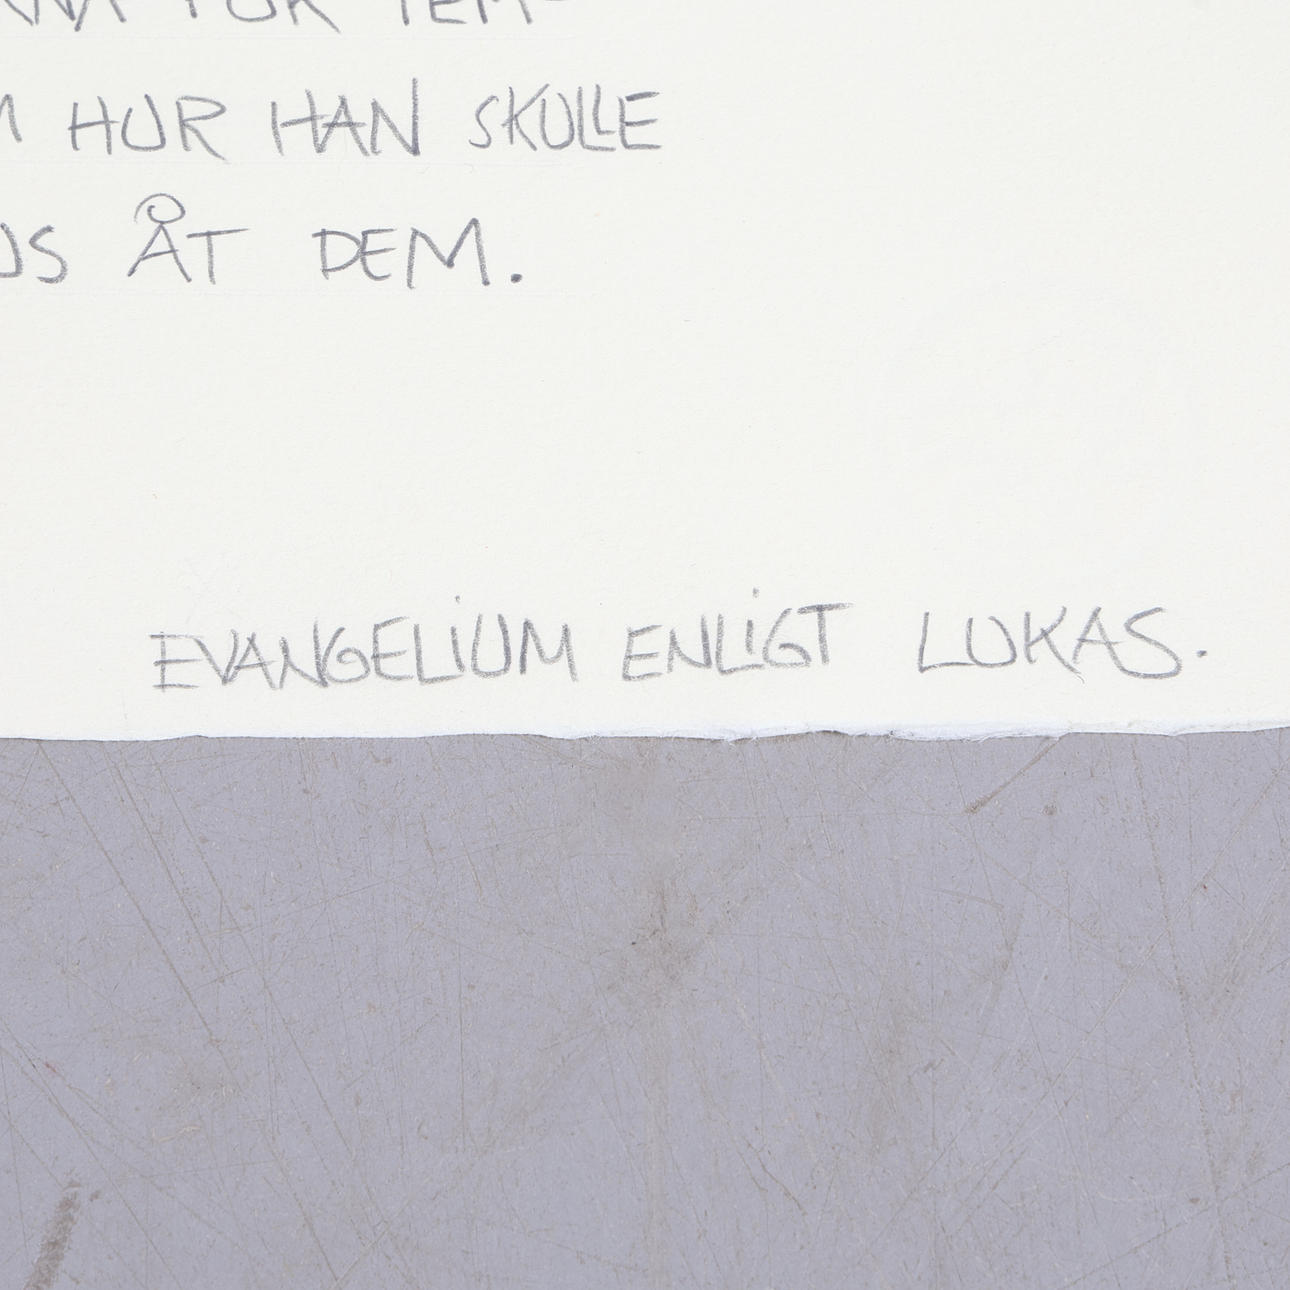 FÖR TEM-
HUR HAN SKULLE
ÅT DEM.
EVANGELIUM ENLIGT LUKAS.